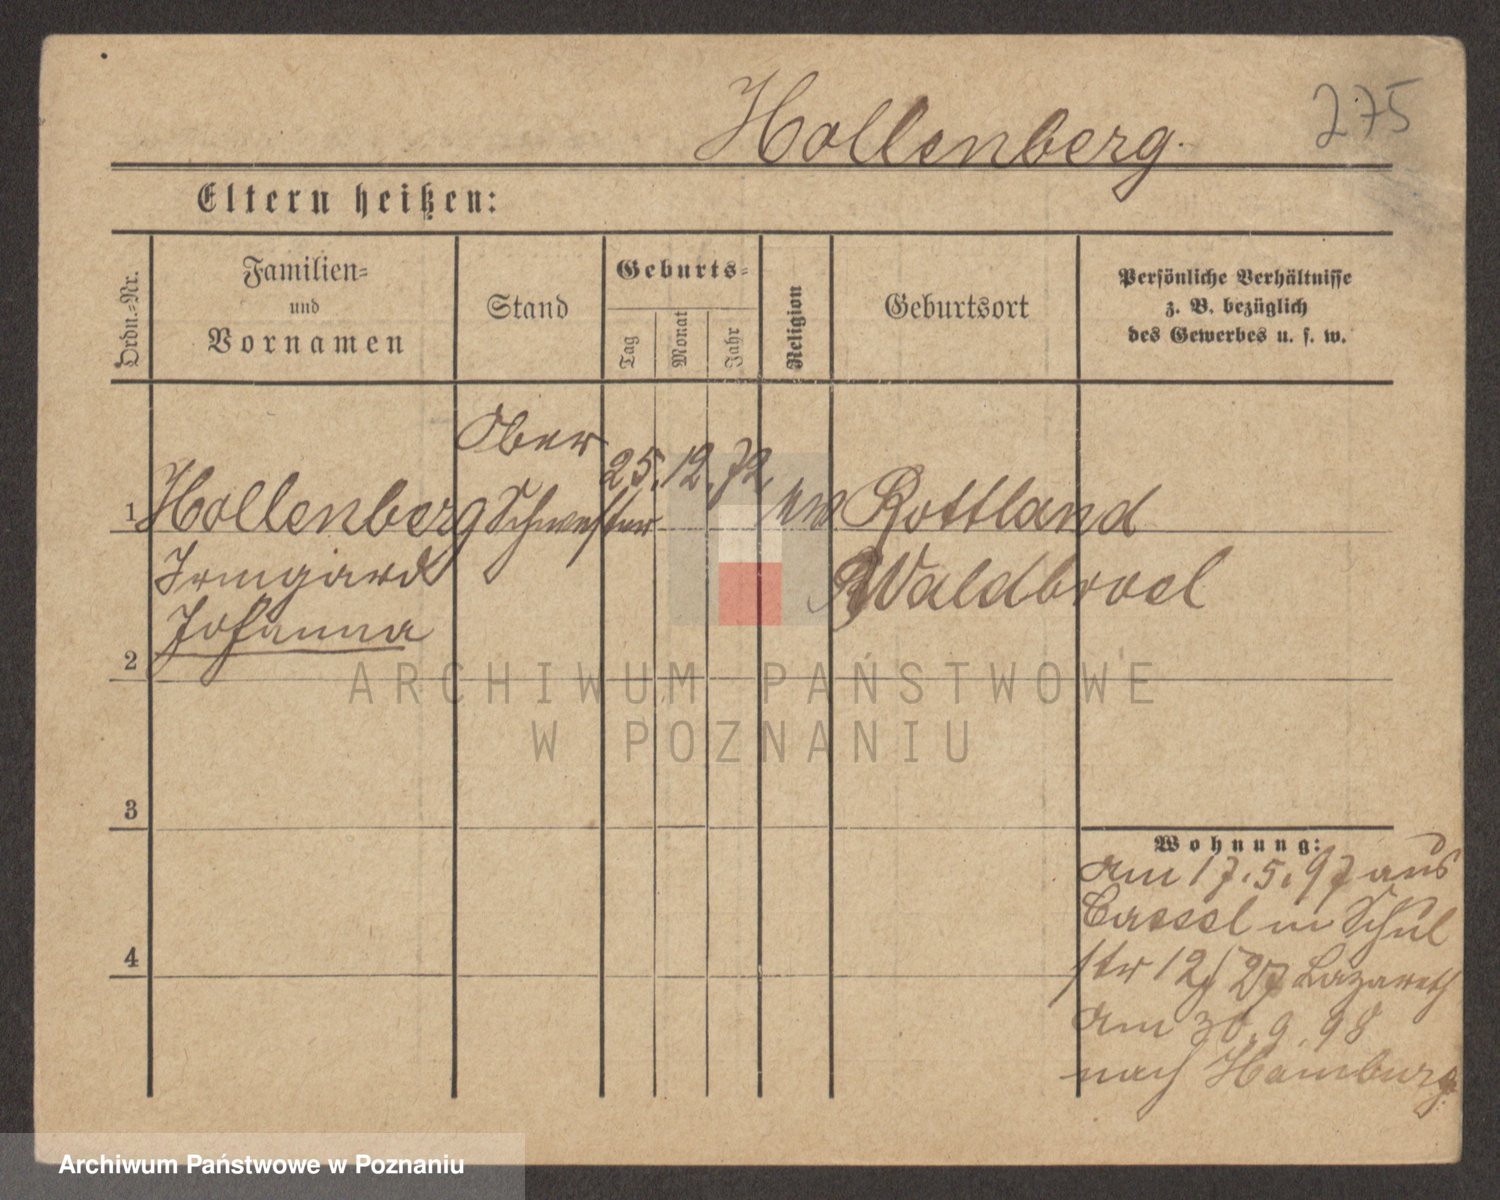 Hollenberg.
275
Eltern heißen:
Ordn.-Nr.
Familien-
und
Vornamen
Stand
Geburts-
Tag
Monat
Jahr
Religion
Geburtsort
Persönliche Verhältnisse
z. B. bezüglich
des Gewerbes u. s. w.
1
Hollenberg
Irmgard
Johanna
Ober
Schwester
25. 12. 72
ev
Rottland
Waldbroel
2
3
4
Wohnung:
Am 17.5.97 aus
Cassel in Schul
str 12/ Lazareth
Am 30.9.98
nach Hamburg.
ARCHIWUM PAŃSTWOWE
W POZNANIU
Archiwum Państwowe w Poznaniu